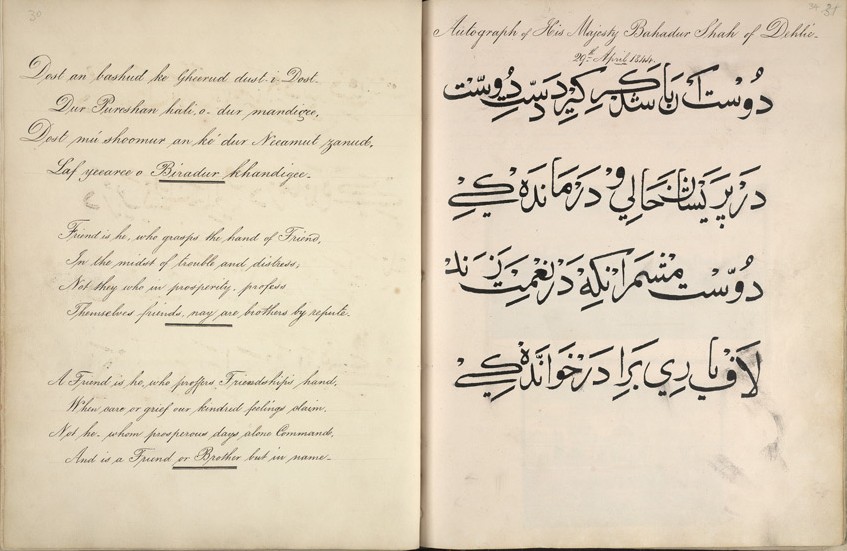 30
Dost an bashud ke Gheerud dust-i-Dost.
Dur Pureshan hali, o- dur mandigee,
Dost mú shoomur an ké dur Neeamut zanud,
Laf yeearee o Biradur khandigee-
Friend is he, who grasps the hand of Friend,
In the midst of trouble and distress;
Not they who in prosperity- profess
Themselves friends, nay are brothers by repute.
A Friend is he, who proffers Friendship's hand,
When care or grief our kindred feelings claim.
Not he- whom prosperous days alone Command,
And is a Friend or Brother but in name-
31
Autograph of His Majesty Bahadur Shah of Dehlie-
29th April 1844.
دُوست آن باشد کِه گیرد دستِ دُوست
در پریشان حالی و درماندهکی
دُوست مشمر انکه در نعمت زند
لاف یاری برادر خواندهکی